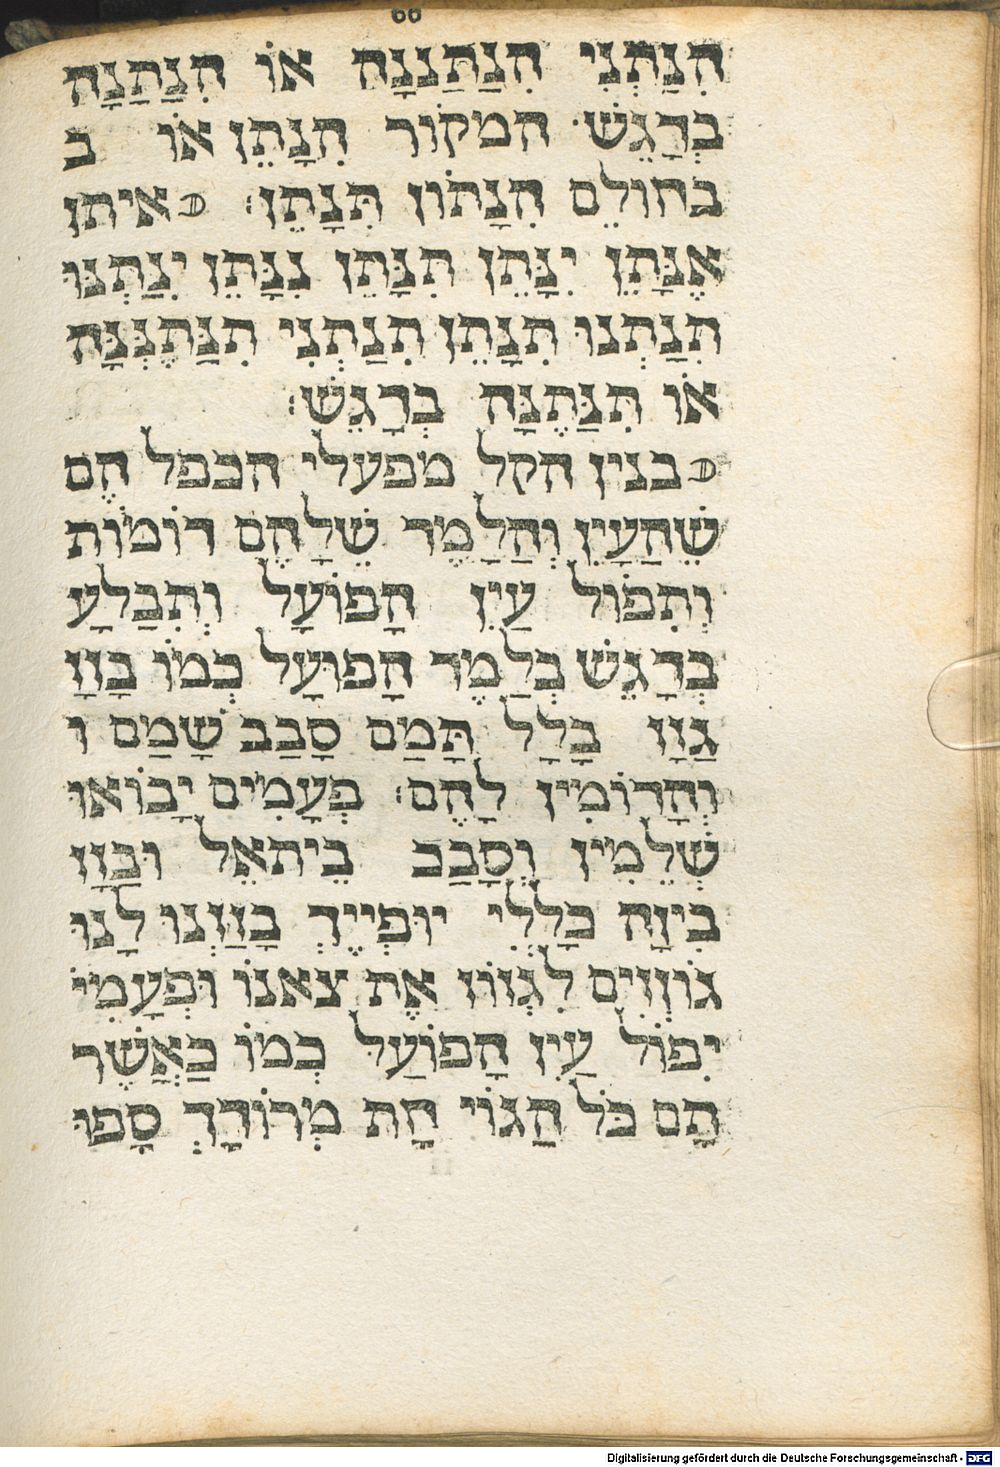 66
הִנַתְנִי הִנַתַנְנָה אוֹ הִנַתַנָה
בְדָגֵשׁ׃ המקוֹר הִנָתֵן אוֹ ב
בחוֹלֵם הִנָתוֹן תִּנָתֵן׃ איתן
אֶנָּתֵן יִנָּתֵן תִּנָּתֵן נִנָּתֵן יִנַּתְנוּ
תִנַתְנוּ תִנָתֵן תִנַתְנִי תִנַּתֶנְנָה
אוֹ תִּנַּתֶנָּה בְדָגֵשׁ׃
בנין הקל מפעלי הכפל הֶם
שֶׁהַעַיִן וְהַלַמֶד שֶׁלָהֶם דוֹמוֹת
וְתִפוֹל עַיִן הָפוֹעָל וְתִבַלַע
בְדָגֵשׁ בְלַמֶד הָפוֹעָל כְמוֹ בָּזַז
גַזַז בָלַל תָּמַם סָבַב שָׁמַם ו
וְהָדוֹמִין לָהֶם׃ פְעָמִים יָבוֹאוּ
שְׁלֵמִין וְסָבַב בֵיתאֵל וּבָזַז
בִיזָה כָלְלֵי יוּפְיֵיךְ בָזַזְנוּ לָנוּ
גוֹזְזִים לִגְזוֹז אֶת צאנוֹ וּפְעָמִי
יִפוֹל עַיִן הָפוֹעַל כְמוֹ כַאֲשֶׁר
תַם כֹל הַגוֹי חָת מְרוֹדָךְ סָפוּ
Digitalisierung gefördert durch die Deutsche Forschungsgemeinschaft - DFG